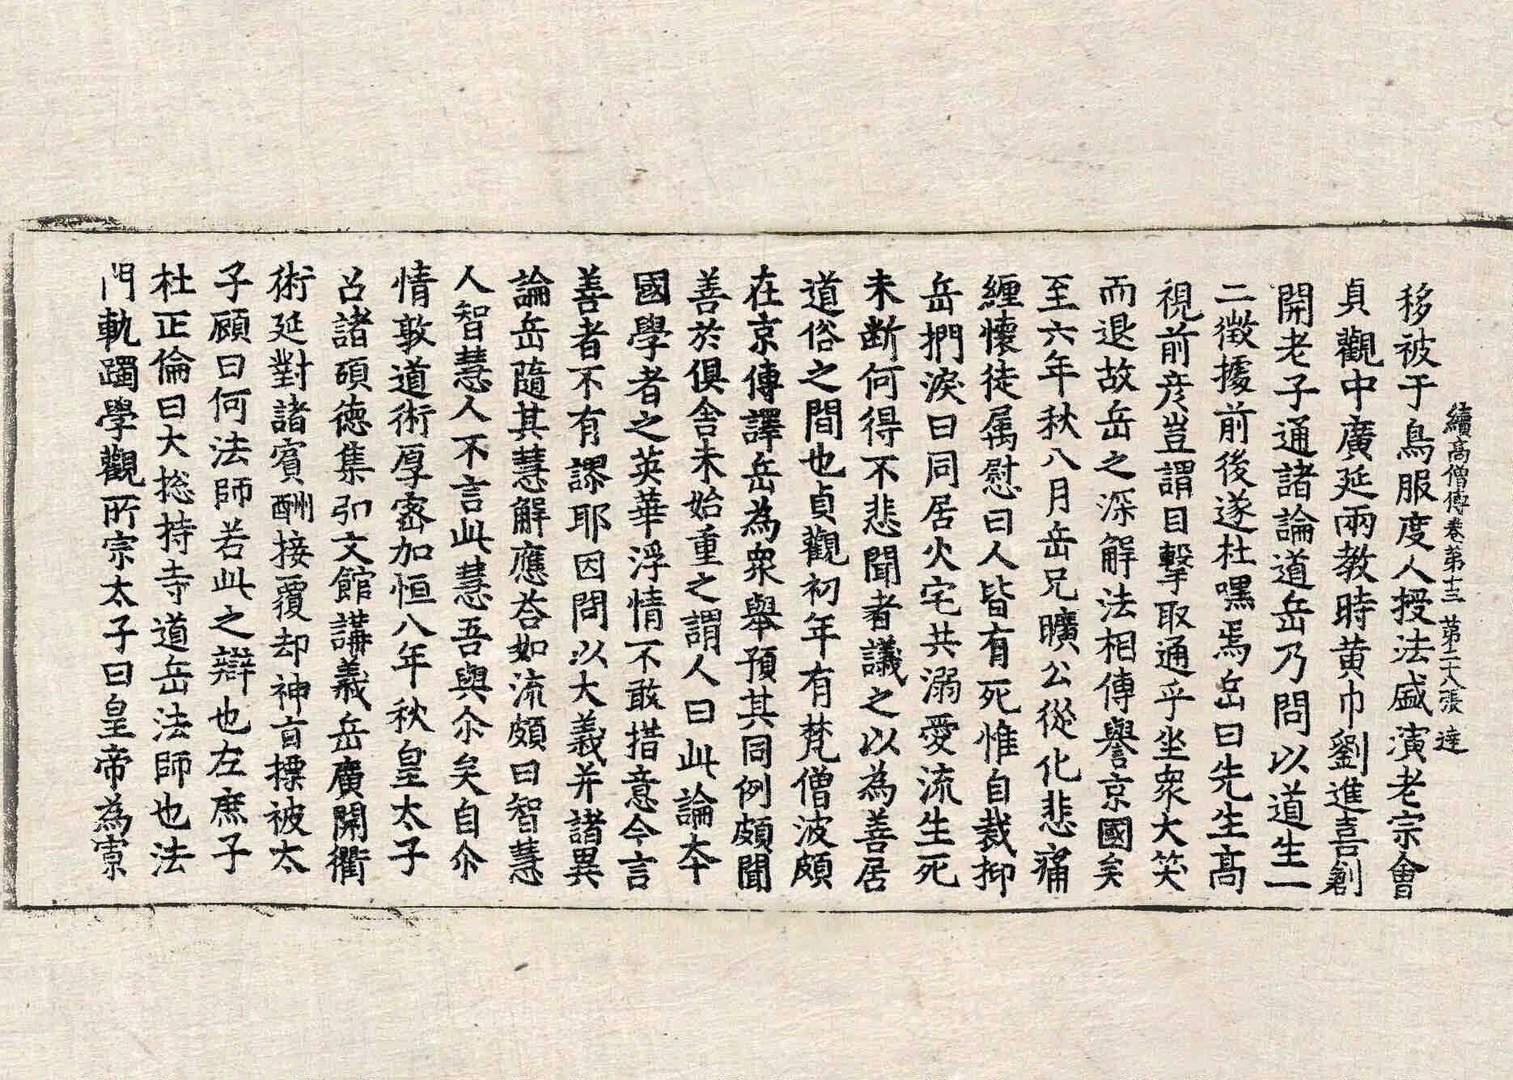 續高僧傳卷第十三 第二十八張 達
移被于鳥服度人授法盛演老宗會
貞觀中廣延兩教時黄巾劉進喜創
開老子通諸論道岳乃問以道生一
二徵據前後遂杜嘿焉岳曰先生高
視前彦豈謂目擊取通乎坐衆大笑
而退故岳之深解法相傳譽京國矣
至六年秋八月岳兄曠公從化悲痛
纏懷徒属慰曰人皆有死惟自裁抑
岳捫淚曰同居火宅共溺愛流生死
未断何得不悲聞者議之以為善居
道俗之間也貞觀初年有梵僧波頗
在京傳譯岳為衆舉預其同例頗聞
善於俱舍未始重之謂人曰此論本
國學者之英華浮情不敢措意今言
善者不有謬耶因問以大義并諸異
論岳隨其慧解應荅如流頗曰智慧
人智慧人不言此慧吾與尒矣自尒
情敦道術厚密加恒八年秋皇太子
召諸碩德集弘文館講義岳廣開衢
術延對諸賓酬接覆却神旨摽被太
子顧曰何法師若此之辯也左庶子
杜正倫曰大捴持寺道岳法師也法
門軌躅學觀所宗太子曰皇帝為寡